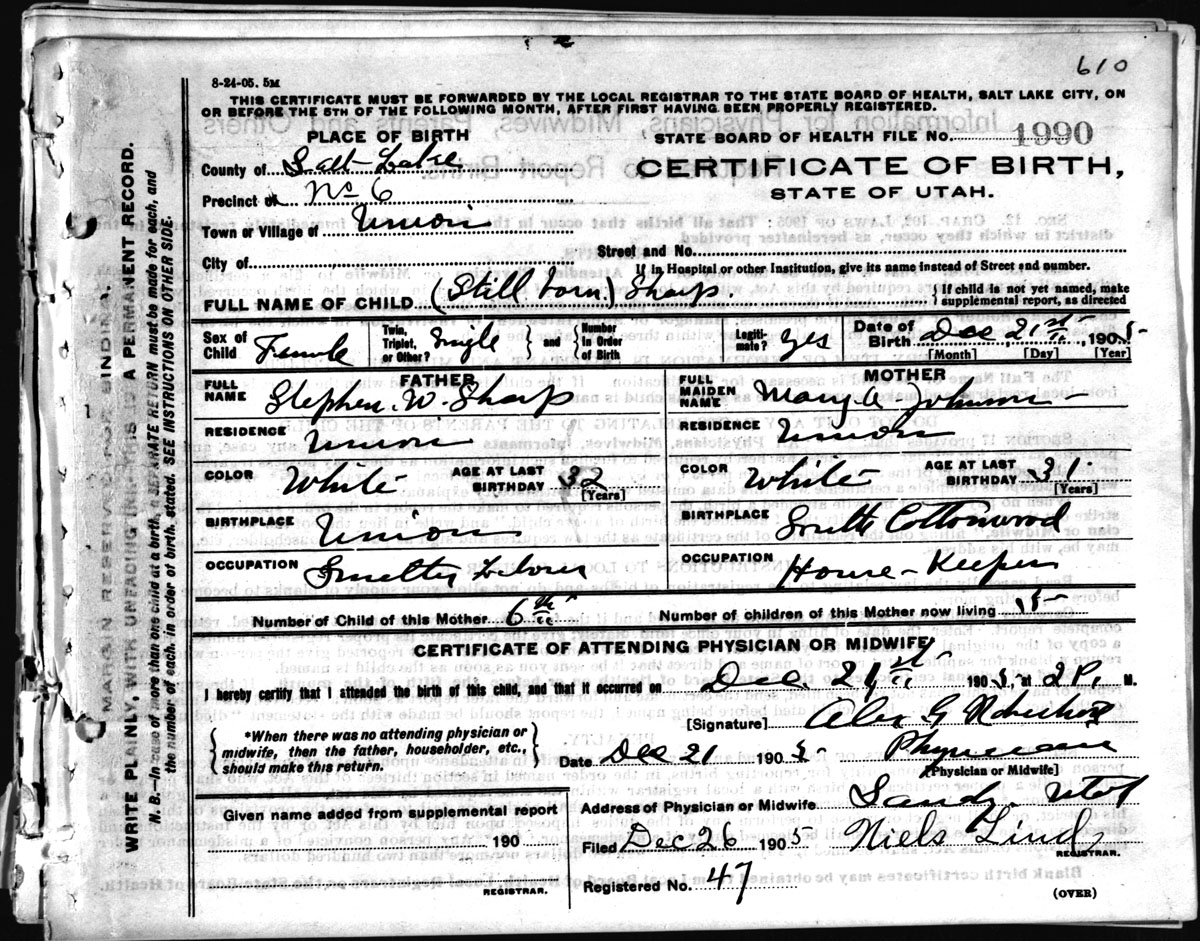 610
8-24-05. 5M
THIS CERTIFICATE MUST BE FORWARDED BY THE LOCAL REGISTRAR TO THE STATE BOARD OF HEALTH, SALT LAKE CITY, ON
OR BEFORE THE 5TH OF THE FOLLOWING MONTH, AFTER FIRST HAVING BEEN PROPERLY REGISTERED.
PLACE OF BIRTH
STATE BOARD OF HEALTH FILE No. 1990
County of Salt Lake
CERTIFICATE OF BIRTH,
Precinct of No 6
STATE OF UTAH.
Town or Village of Union
Street and No.
City of
If in Hospital or other Institution, give its name instead of Street and number.
FULL NAME OF CHILD (Still born) Sharp. { If child is not yet named, make
supplemental report, as directed
Sex of Child Female
Twin, Triplet, or Other? Single } and { Number in Order of Birth
Legitimate? yes
Date of Birth Dec 21st 1905
[Month] [Day] [Year]
FATHER
FULL NAME Stephen W. Sharp
RESIDENCE Union
COLOR White AGE AT LAST BIRTHDAY 32
[Years]
BIRTHPLACE Union
OCCUPATION
MOTHER
FULL MAIDEN NAME Mary A Johnson
RESIDENCE Union
COLOR White AGE AT LAST BIRTHDAY 31
[Years]
BIRTHPLACE South Cottonwood
OCCUPATION House-Keeper
Number of Child of this Mother 6th Number of children of this Mother now living 5
CERTIFICATE OF ATTENDING PHYSICIAN OR MIDWIFE*
I hereby certify that I attended the birth of this child, and that it occurred on Dec 21st 1905, at 2 P. M.
[Signature] Alex G
*When there was no attending physician or
midwife, then the father, householder, etc.,
should make this return.
Date Dec 21 1905 Physician
[Physician or Midwife]
Given name added from supplemental report
190
REGISTRAR.
Address of Physician or Midwife Sandy Utah
Filed Dec 26 1905 Niels Lind
REGISTRAR.
Registered No. 47
(OVER)
MARGIN RESERVED FOR BINDING.
WRITE PLAINLY, WITH UNFADING INK—THIS IS A PERMANENT RECORD.
N. B.—In case of more than one child at a birth, a SEPARATE RETURN must be made for each, and
the number of each, in order of birth, stated. SEE INSTRUCTIONS ON OTHER SIDE.